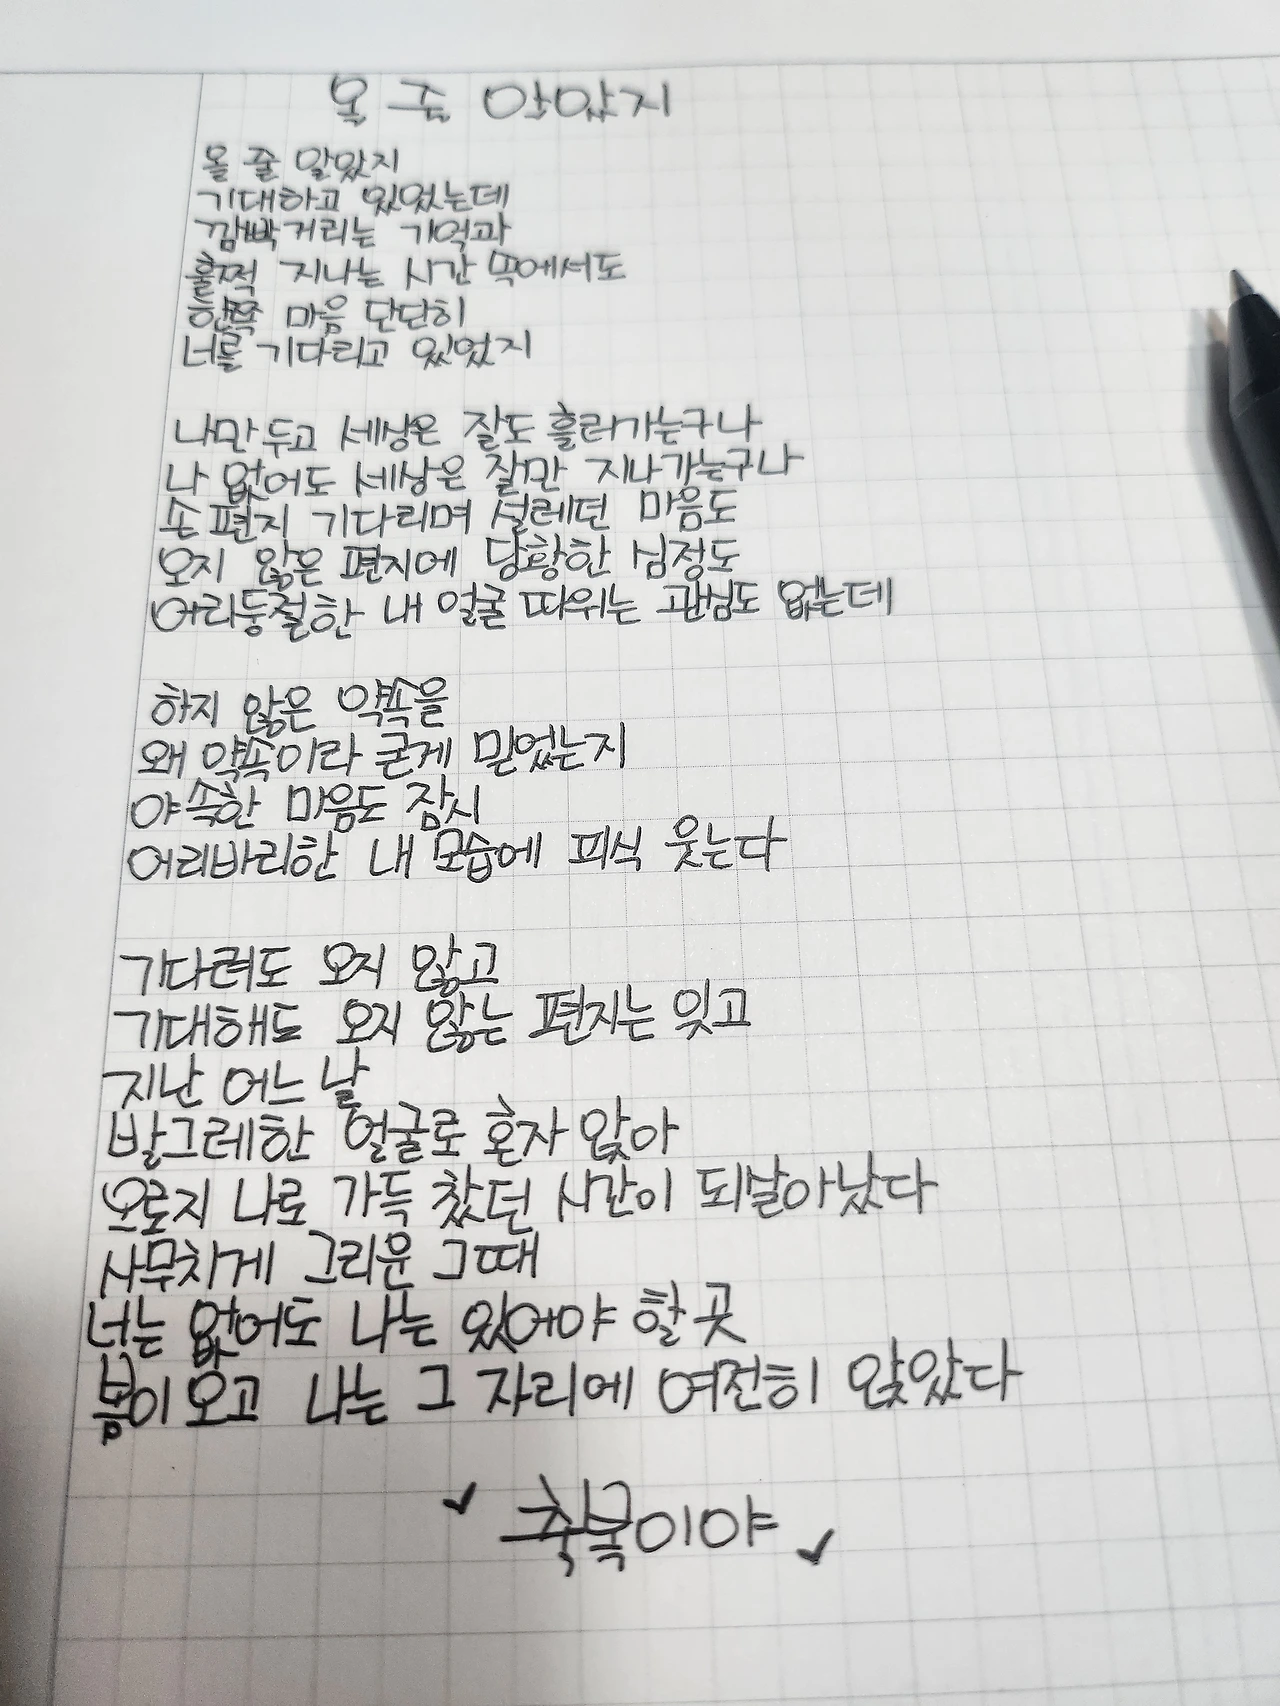 올 줄 알았지
올 줄 알았지
기대하고 있었는데
깜빡거리는 기억과
훌쩍 지나는 시간 속에서도
한쪽 마음 단단히
너를 기다리고 있었지
나만 두고 세상은 잘도 흘러가는구나
나 없어도 세상은 잘만 지나가는구나
손 편지 기다리며 설레던 마음도
오지 않은 편지에 당황한 심정도
어리둥절한 내 얼굴 따위는 관심도 없는데
하지 않은 약속을
왜 약속이라 굳게 믿었는지
야속한 마음도 잠시
어리바리한 내 모습에 피식 웃는다
기다려도 오지 않고
기대해도 오지 않는 편지는 잊고
지난 어느 날
발그레한 얼굴로 혼자 앉아
오로지 나로 가득 찼던 시간이 되살아났다
사무치게 그리운 그때
너는 없어도 나는 있어야 할 곳
봄이 오고 나는 그 자리에 여전히 앉았다
축복이야